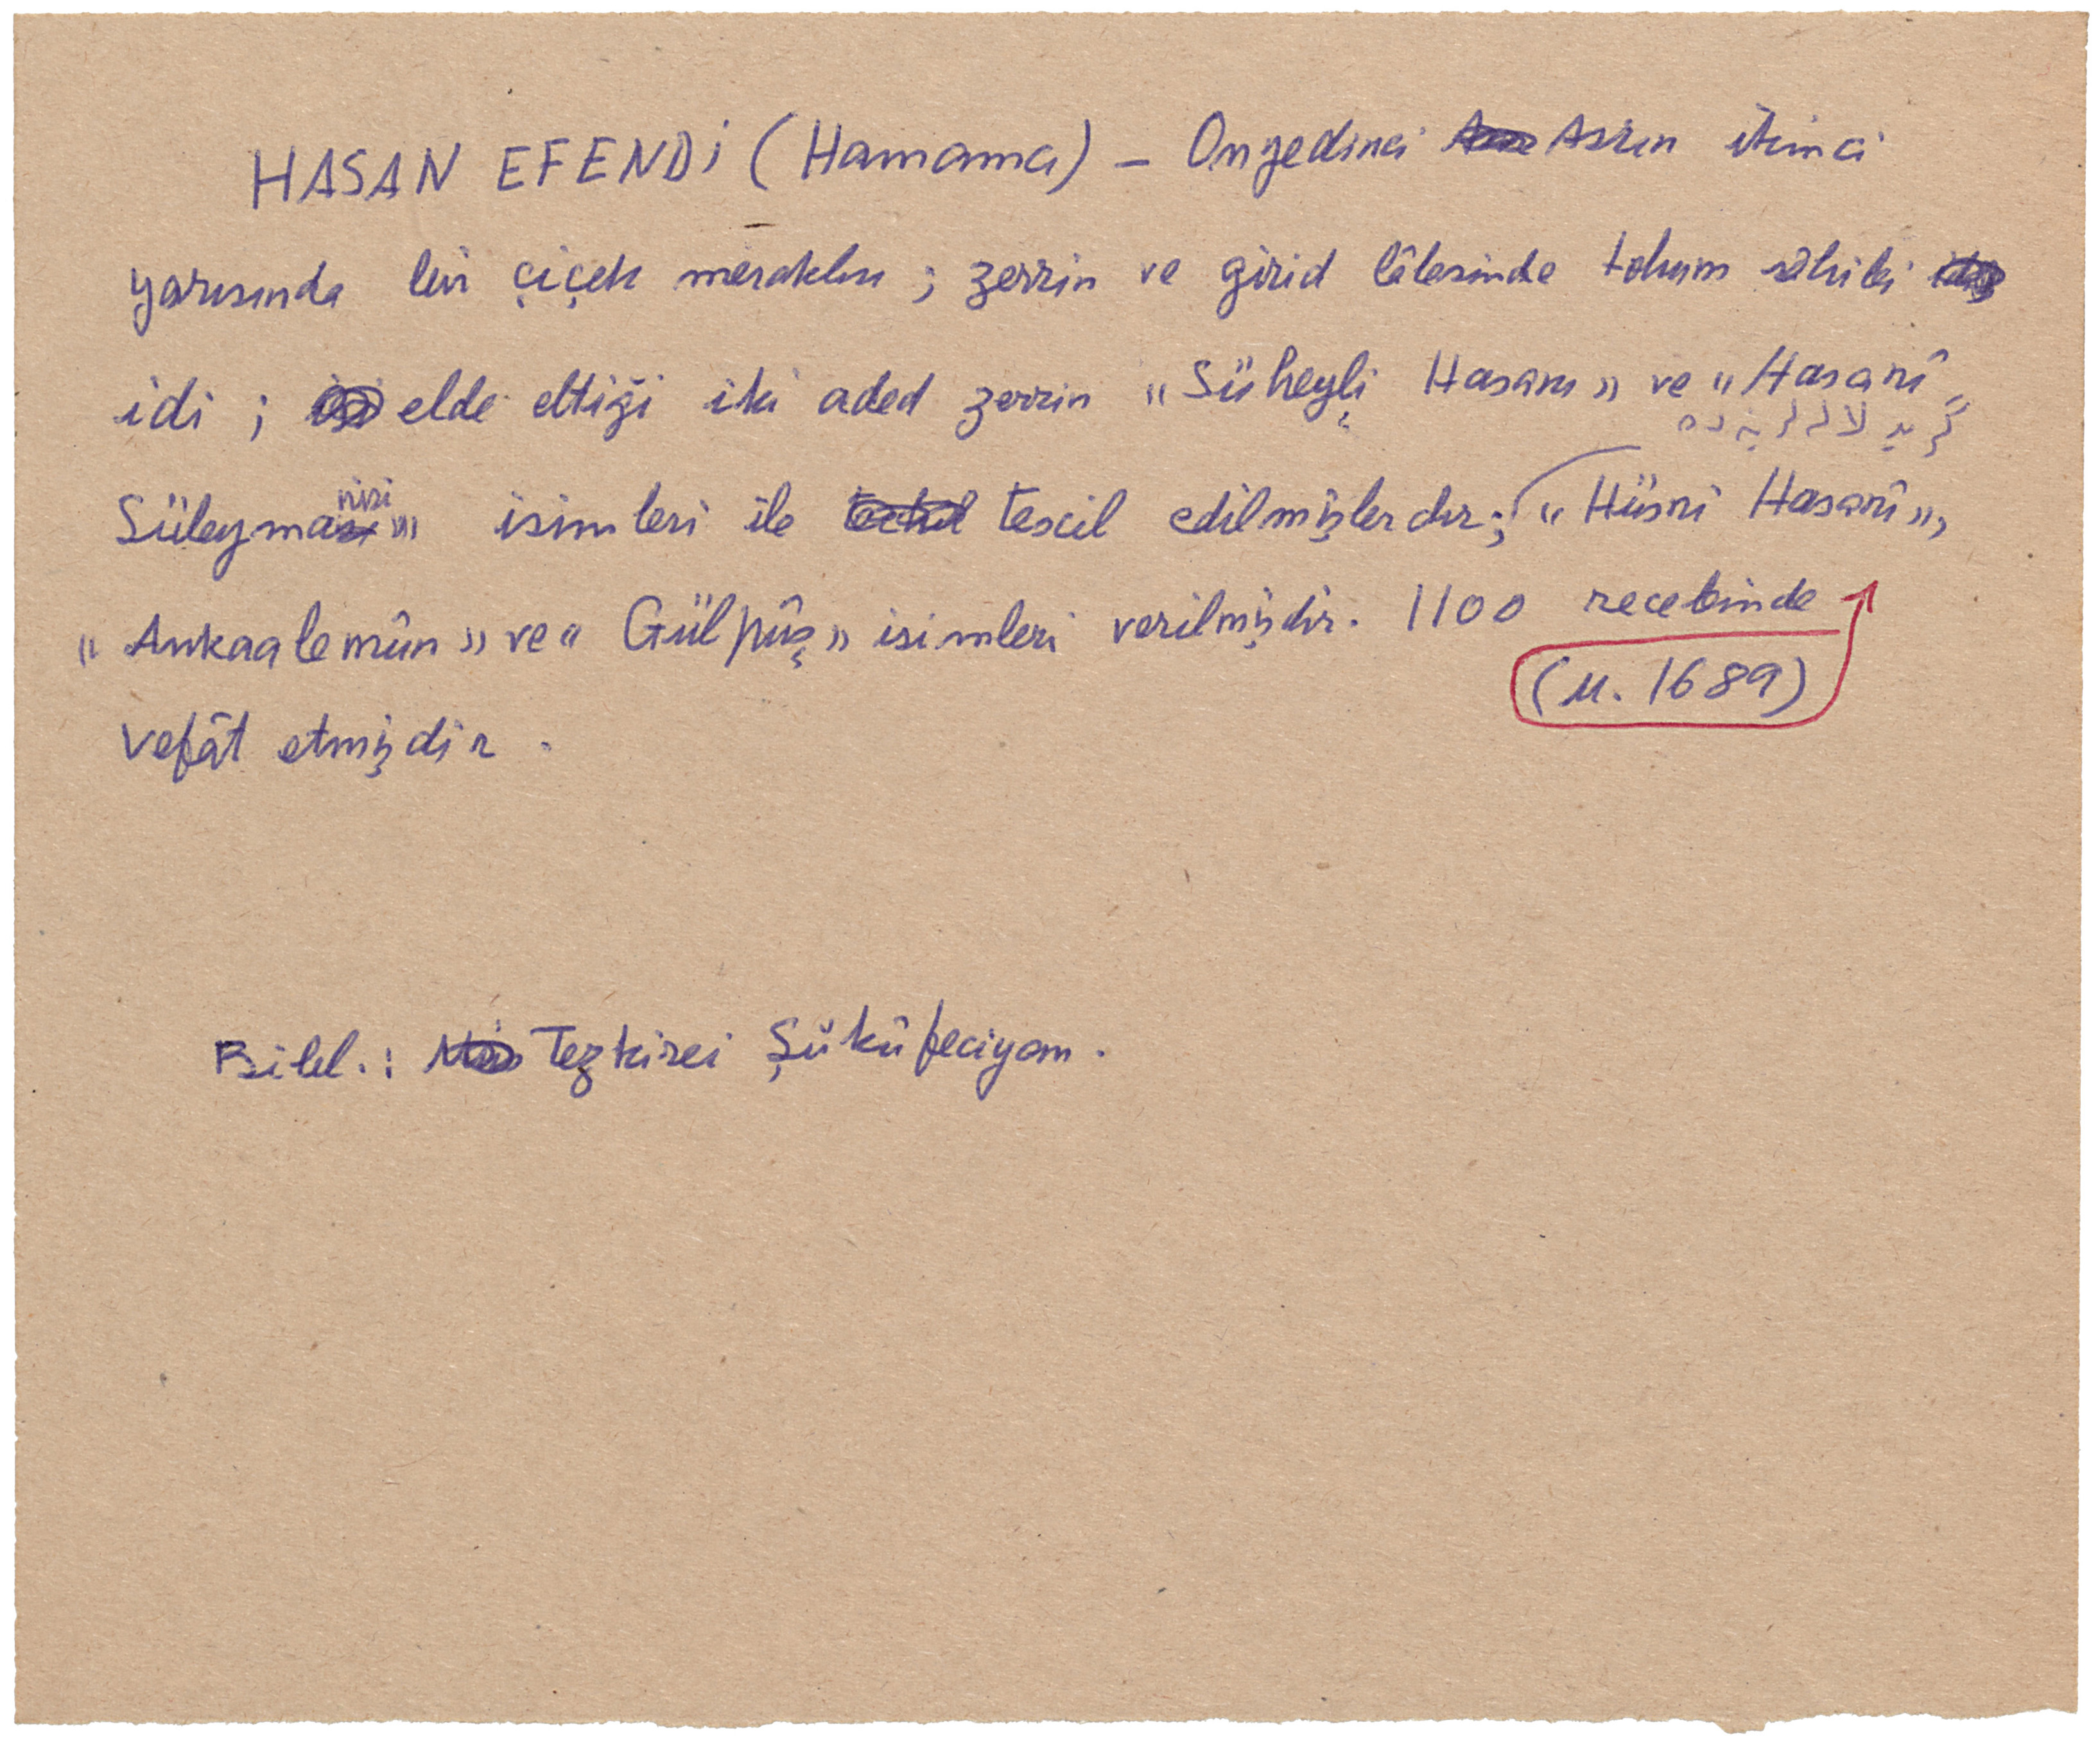 HASAN EFENDİ (Hamama) – Onyedinci Asrın ikinci
yarısında bir çiçek meraklısı ; zerrin ve girid lâlesinde tohum sâhibi
idi ; elde ettiği iki aded zerrin "Süheyli Hasanı" ve "Hasanî
كريد لاله لرينه ده
Süleymanisi" isimleri ile tescil edilmişlerdir; "Hüsni Hasanî",
"Ankaalemûn" ve "Gülpûş" isimleri verilmişdir. 1100 recebinde
(M. 1689)
vefât etmişdir.
Bibl.: Tezkirei Şükûfeciyan.